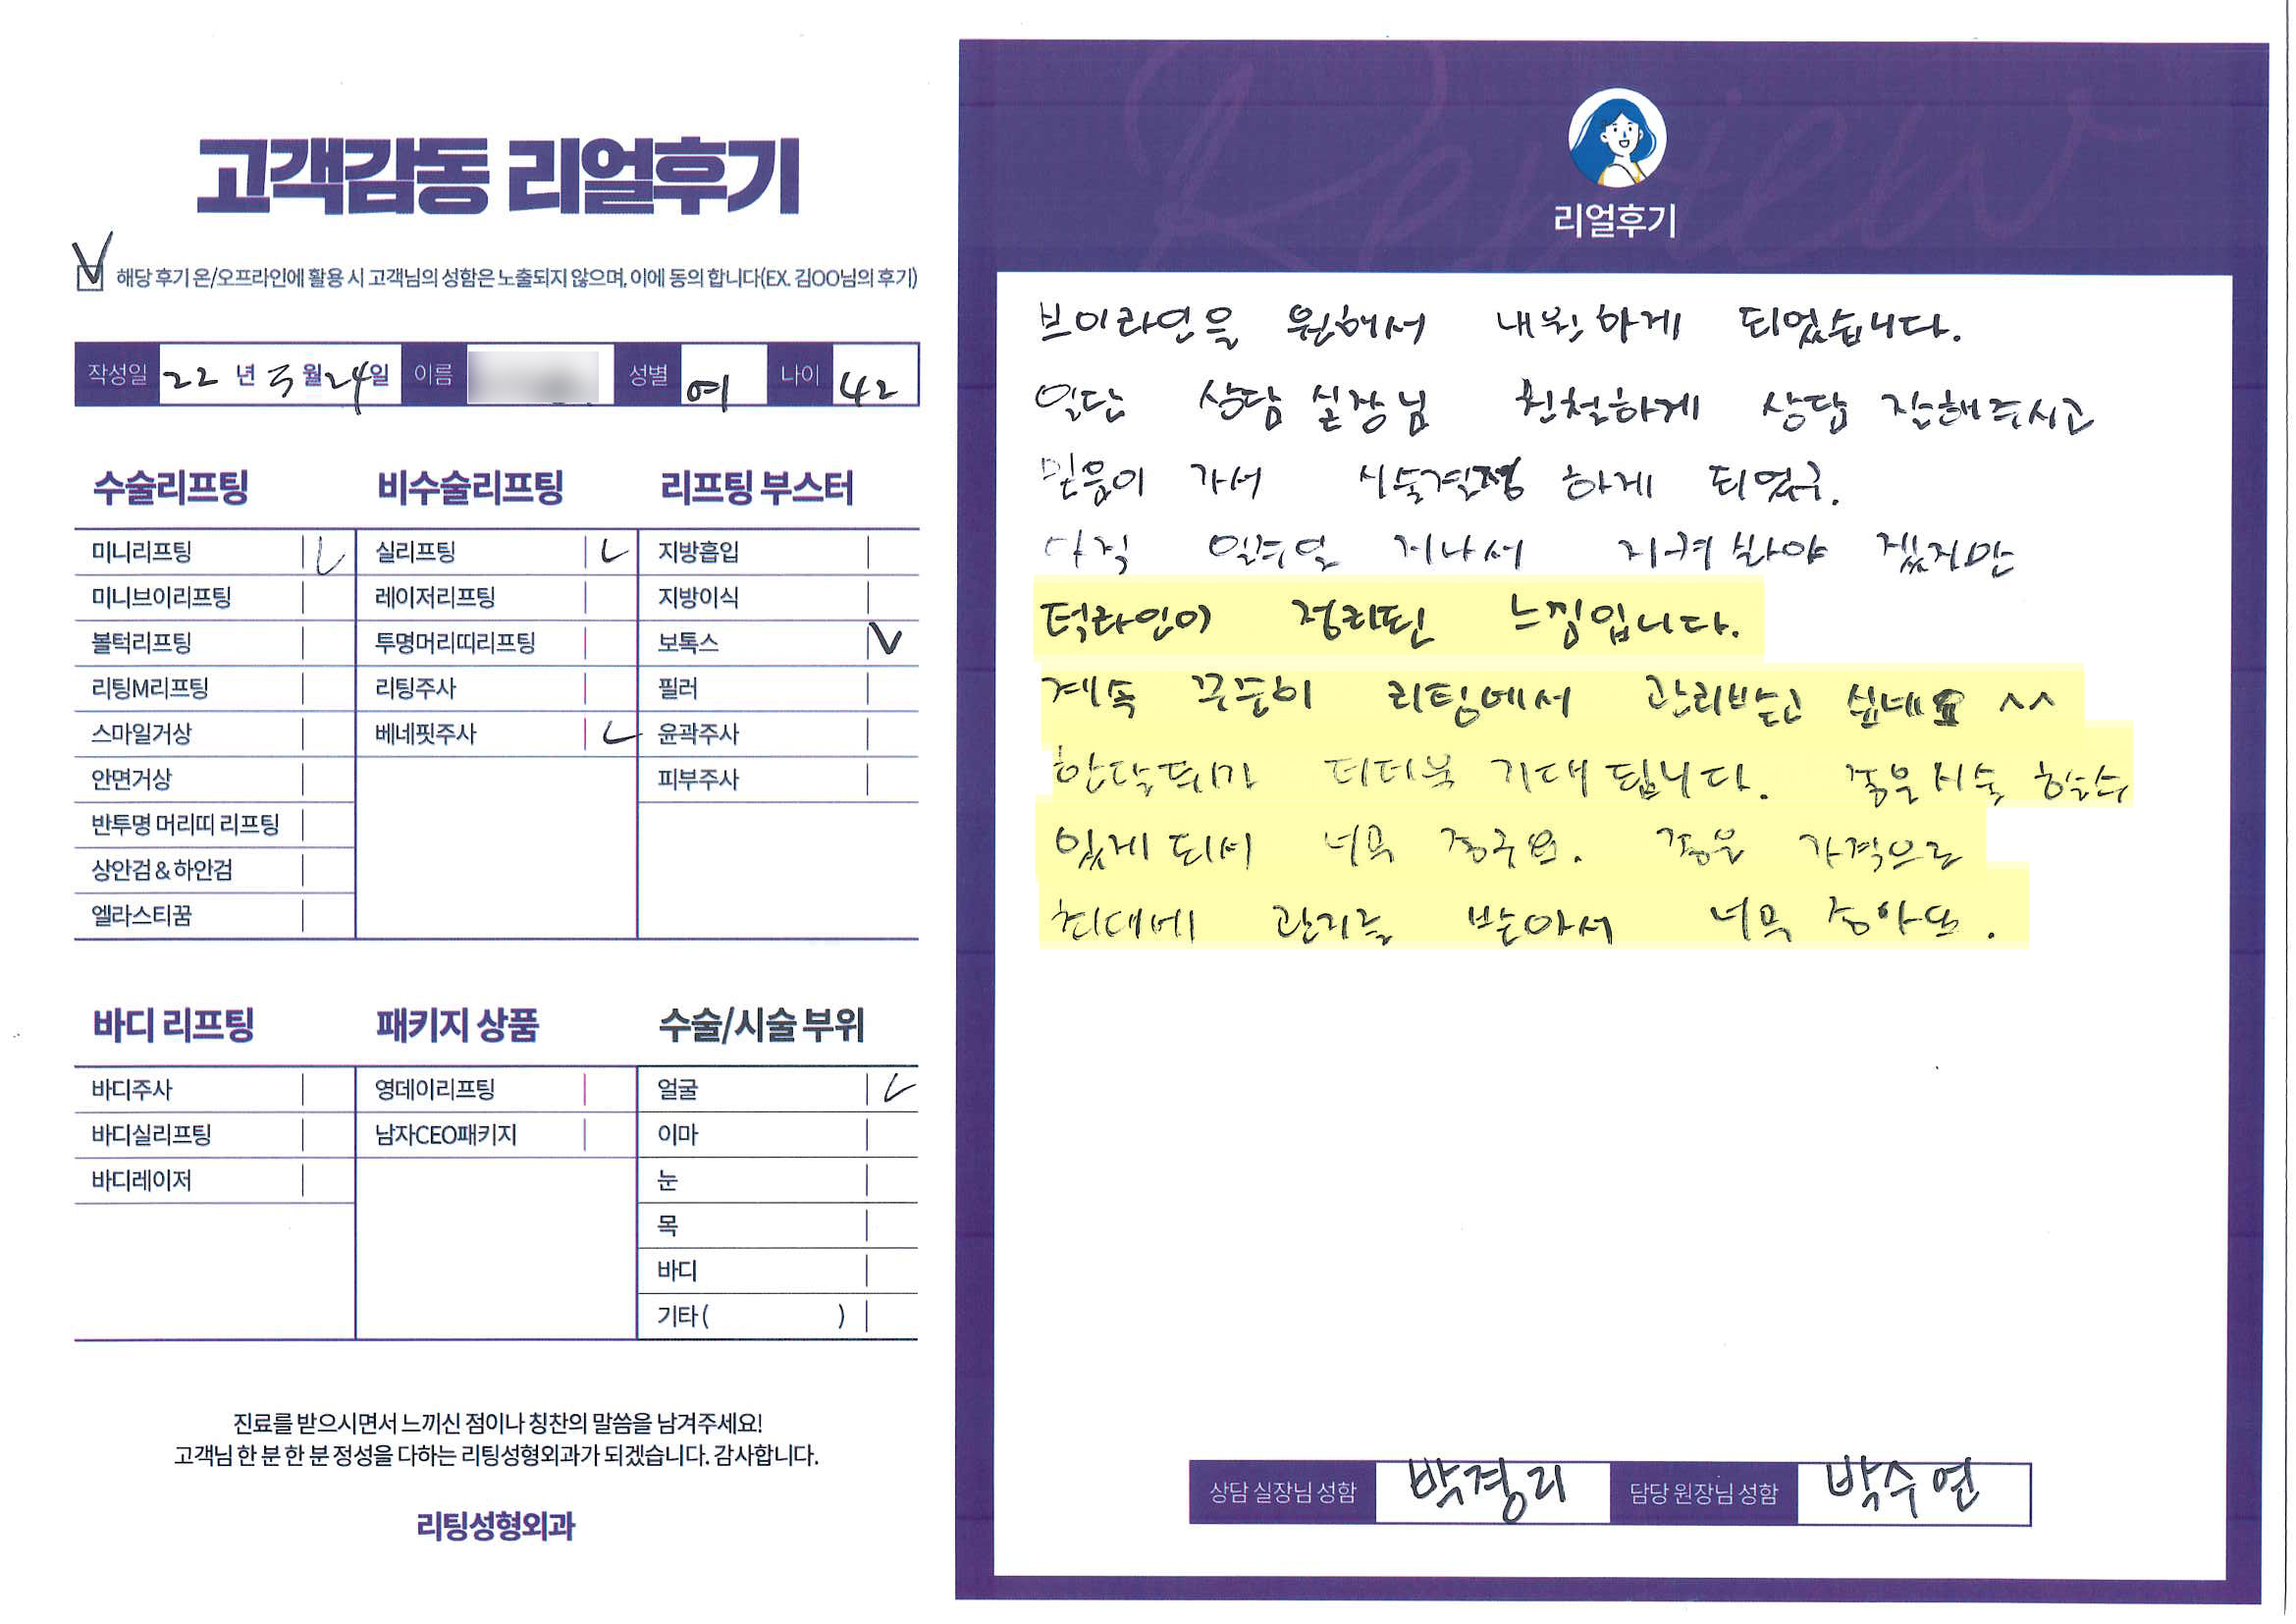 고객감동 리얼후기
V 해당 후기 온/오프라인에 활용 시 고객님의 성함은 노출되지 않으며, 이에 동의 합니다(EX. 김OO님의 후기)
작성일 22 년 3 월 24 일 이름 성별 여 나이 42
수술리프팅 비수술리프팅 리프팅 부스터
미니리프팅 V 실리프팅 V 지방흡입
미니브이리프팅 레이저리프팅 지방이식
볼턱리프팅 투명머리띠리프팅 보톡스 V
리팅M리프팅 리팅주사 필러
스마일거상 베네핏주사 V 윤곽주사
안면거상 피부주사
반투명 머리띠 리프팅
상안검 & 하안검
엘라스티꿈
바디 리프팅 패키지 상품 수술/시술 부위
바디주사 영데이리프팅 얼굴 V
바디실리프팅 남자CEO패키지 이마
바디레이저 눈
목
바디
기타 ( )
진료를 받으시면서 느끼신 점이나 칭찬의 말씀을 남겨주세요!
고객님 한 분 한 분 정성을 다하는 리팅성형외과가 되겠습니다. 감사합니다.
리팅성형외과
Review
리얼후기
브이라인을 원해서 내원하게 되었습니다.
일단 상담 실장님 친철하게 상담 잘해주시고
믿음이 가서 시술결정 하게 되었구.
아직 일주일 지나서 지켜봐야 겠지만
턱라인이 정리된 느낌입니다.
계속 꾸준이 리팅에서 관리받고 싶네요 ^^
한달뒤가 더더욱 기대 됩니다. 좋은시술 할수
있게 되서 너무 좋구요. 좋은 가격으로
최대에 관리를 받아서 너무 좋아요.
상담 실장님 성함 박경리 담당 원장님 성함 박수연